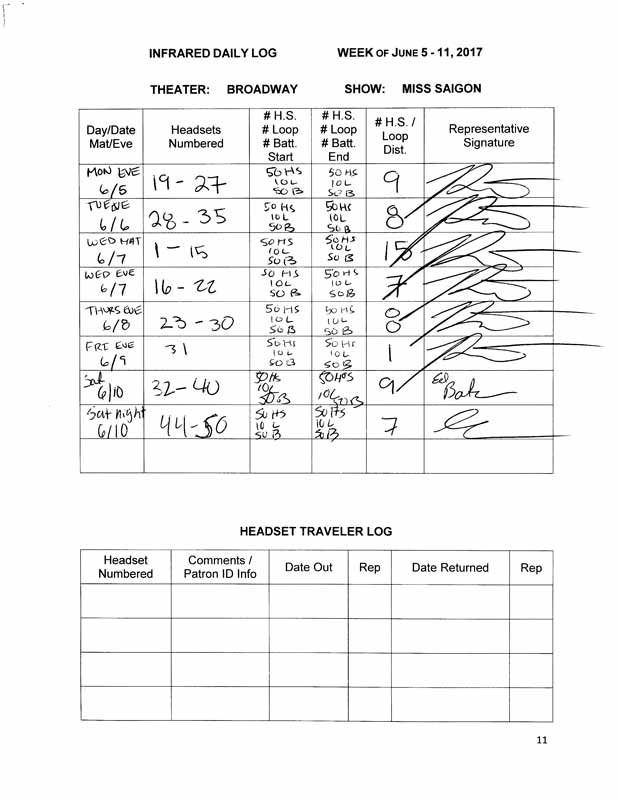 INFRARED DAILY LOG WEEK OF JUNE 5 - 11, 2017
THEATER: BROADWAY SHOW: MISS SAIGON
Day/Date Mat/Eve Headsets Numbered # H.S. # Loop # Batt. Start # H.S. # Loop # Batt. End # H.S. / Loop Dist. Representative Signature
MON EVE 6/5 19 - 27 50 HS 10 L 50 B 50 HS 10 L 50 B 9
TUE EVE 6/6 28 - 35 50 HS 10L 50 B 50 HS 10L 50 B 8
WED MAT 6/7 1 - 15 50 HS 10L 50 B 50 HS 10L 50 B 15
WED EVE 6/7 16 - 22 50 HS 10L 50 B 50 HS 10L 50 B 7
THURS EVE 6/8 23 - 30 50 HS 10L 50 B 50 HS 10L 50 B 8
FRI EVE 6/9 31 50 HS 10 L 50 B 50 HS 10 L 50 B 1
Sat 6/10 32 - 40 50 HS 10L 50 B 50 HS 10L 50 B 9 Ed
Sat night 6/10 44 - 50 50 HS 10 L 50 B 50 HS 10 L 50 B 7
HEADSET TRAVELER LOG
Headset Numbered Comments / Patron ID Info Date Out Rep Date Returned Rep
11